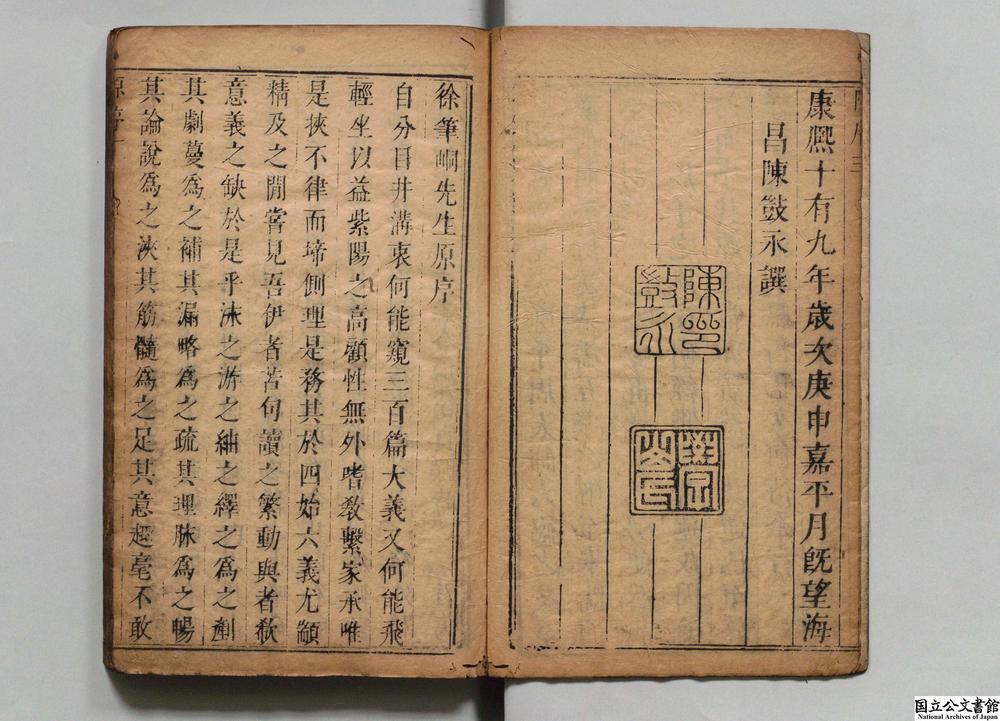 康熙十有九年歲次庚申嘉平月旣望海
昌陳敱永譔
陳印
敱永
徐筆峒先生原序
自分目井溝衷何能窺三百篇大義又何能飛
輕坐以益紫陽之高顧性無外嗜敎繫家承唯
是挾不律而埽側理是務其於四始六義尤顓
精及之閒嘗見吾伊者苦句讀之繁動輿者欷
意義之缺於是乎沬之游之紬之繹之為之劀
其劇蔓為之補其漏略為之疏其理脉為之暢
其論說為之浹其筋髓為之足其意趣毫不敢
原序
国立公文書館
National Archives of Japan